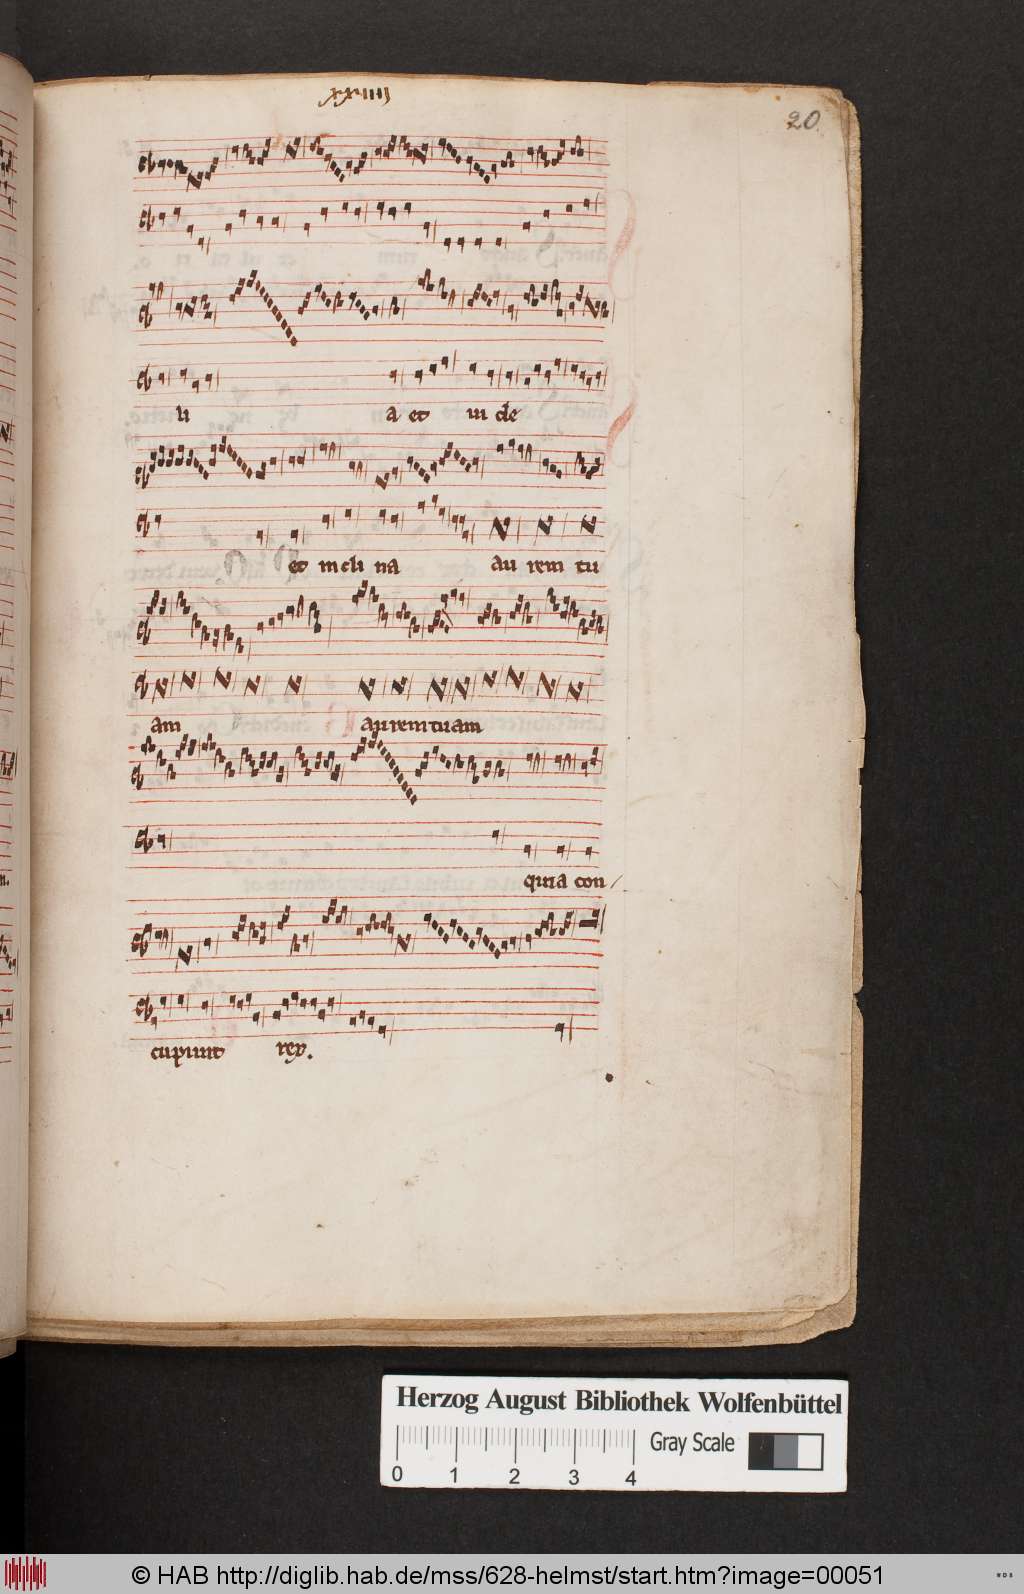 xxiiii
20
li a et ui de
et incli na au rem tu
am aurem tuam
quia con
cupiunt rex.
Herzog August Bibliothek Wolfenbüttel
Gray Scale
0 1 2 3 4
© HAB http://diglib.hab.de/mss/628-helmst/start.htm?image=00051
WDB